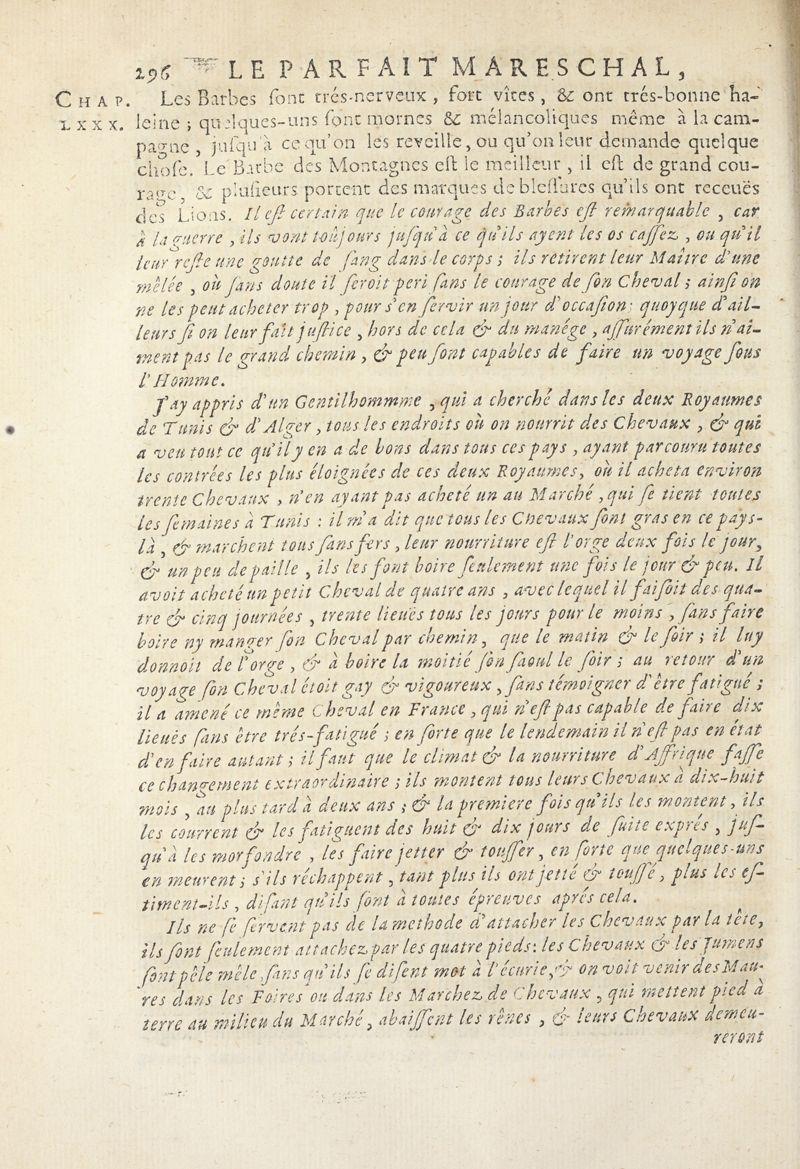 296 LE PARFAIT MARESCHAL,
CHAP. Les Barbes ſont trés-nerveux, fort vîtes, & ont trés-bonne ha-
LXXX. leine ; quelques-uns ſont mornes & mélancoliques même à la cam-
pagne, juſqu'à ce qu'on les reveille, ou qu'on leur demande quelque
choſe. Le Barbe des Montagnes eſt le meilleur, il eſt de grand cou-
rage, & pluſieurs portent des marques de bleſſures qu'ils ont receuës
des Lions. Il eſt certain que le courage des Barbes eſt remarquable, car
à la guerre, ils vont toûjours juſqu'à ce qu'ils ayent les os caſſez, ou qu'il
leur reſte une goutte de ſang dans le corps ; ils retirent leur Maître d'une
mêlée, où ſans doute il ſeroit peri ſans le courage de ſon Cheval ; ainſi on
ne les peut acheter trop, pour s'en ſervir un jour d'occaſion ; quoyque d'ail-
leurs ſi on leur fait juſtice, hors de cela & du manége, aſſurément ils n'ai-
ment pas le grand chemin, & peu ſont capables de faire un voyage ſous
l'Homme.
J'ay appris d'un Gentilhommme, qui a cherché dans les deux Royaumes
de Tunis & d'Alger, tous les endroits où on nourrit des Chevaux, & qui
a veu tout ce qu'il y en a de bons dans tous ces pays, ayant parcouru toutes
les contrées les plus éloignées de ces deux Royaumes, où il acheta environ
trente Chevaux, n'en ayant pas acheté un au Marché, qui ſe tient toutes
les ſemaines à Tunis : il m'a dit que tous les Chevaux ſont gras en ce pays-
là, & marchent tous ſans fers, leur nourriture eſt l'orge deux fois le jour,
& un peu de paille, ils les font boire ſeulement une fois le jour & peu. Il
avoit acheté un petit Cheval de quatre ans, avec lequel il faiſoit des qua-
tre & cinq journées, trente lieuës tous les jours pour le moins, ſans faire
boire ny manger ſon Cheval par chemin, que le matin & le ſoir ; il luy
donnoit de l'orge, & à boire la moitié ſon ſaoul le ſoir ; au retour d'un
voyage ſon Cheval étoit gay & vigoureux, ſans témoigner d'être fatigué ;
il a amené ce même Cheval en France, qui n'eſt pas capable de faire dix
lieuës ſans être trés-fatigué ; en ſorte que le lendemain il n'eſt pas en état
d'en faire autant ; il faut que le climat & la nourriture d'Affrique faſſe
ce changement extraordinaire ; ils montent tous leurs Chevaux à dix-huit
mois, au plus tard à deux ans ; & la premiere fois qu'ils les montent, ils
les courrent & les fatiguent des huit & dix jours de ſuite exprés, juſ-
qu'à les morfondre, les faire jetter & touſſer, en ſorte que quelques-uns
en meurent ; s'ils réchappent, tant plus ils ont jetté & touſſé, plus les eſ-
timent-ils, diſant qu'ils ſont à toutes épreuves aprés cela.
Ils ne ſe ſervent pas de la methode d'attacher les Chevaux par la tête,
ils ſont ſeulement attachez par les quatre pieds : les Chevaux & les Jumens
ſont pêle mêle, ſans qu'ils ſe diſent mot à l'écurie, & on voit venir des Mau-
res dans les Foires ou dans les Marchez de Chevaux, qui mettent pied à
terre au milieu du Marché, abaiſſent les rênes, & leurs Chevaux demeu-
reront